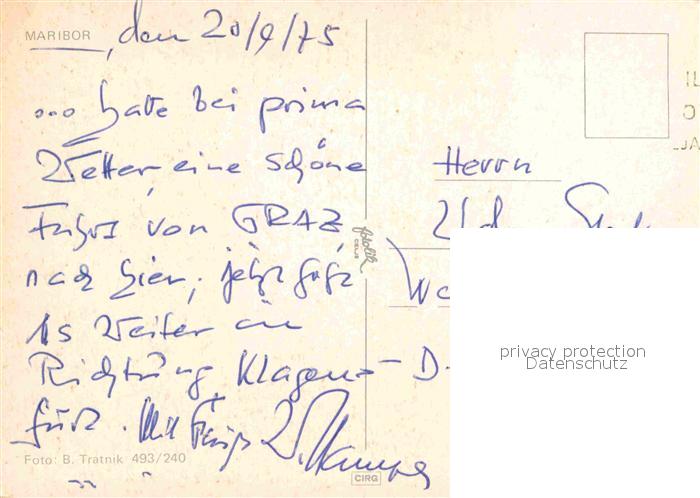 MARIBOR, den 20/9/75
... hatte bei prima
Wetter, eine schöne
Fahrt von GRAZ
nach hier, jetzt geht
es weiter in
Richtung Klagen-
furt. Mit Gruß
Foto: B. Tratnik 493/240
fotolik
CELJE
CIRG
Herrn
We
D-
privacy protection
Datenschutz